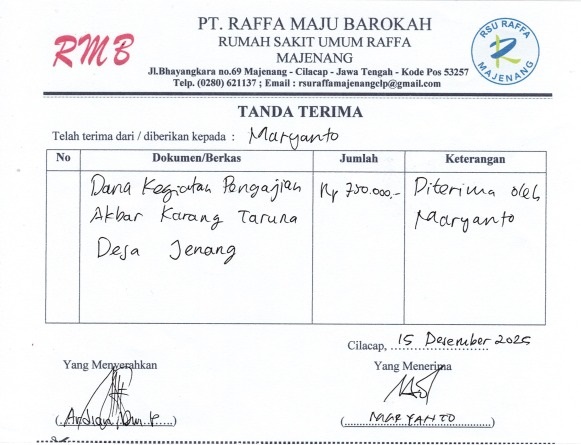 RMB
PT. RAFFA MAJU BAROKAH
RUMAH SAKIT UMUM RAFFA
MAJENANG
Jl.Bhayangkara no.69 Majenang - Cilacap - Jawa Tengah - Kode Pos 53257
Telp. (0280) 621137 ; Email : rsuraffamajenangclp@gmail.com
RSU RAFFA
MAJENANG
TANDA TERIMA
Telah terima dari / diberikan kepada : Maryanto
No Dokumen/Berkas Jumlah Keterangan
Dana Kegiatan Pengajian Rp 750.000,- Diterima oleh
Akbar Karang Taruna Maryanto
Desa Jenang
Cilacap, 15 Desember 2025
Yang Menyerahkan Yang Menerima
(Ardian) (MARYANTO)